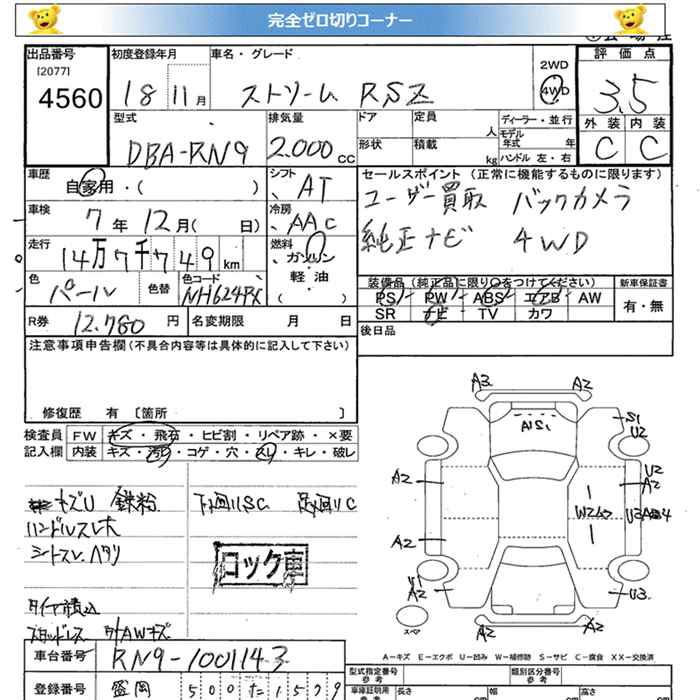 完全ゼロ切りコーナー
出品番号
[2077]
4560
初度登録年月
18 11月
車名・グレード
ストリーム RSZ
2WD
4WD
評価点
3.5
外装 内装
C C
型式
DBA-RN9
排気量
2.000cc
ドア
形状
定員
人
積載
kg
ディーラー・並行
モデル年式 年
ハンドル 左・右
車歴
自家用・( )
シフト
AT
冷房
AAC
セールスポイント (正常に機能するものに限ります)
ユーザー買取 バックカメラ
純正ナビ 4WD
車検
7年12月( 日)
走行
14万7千749km
燃料
ガソリン
軽・油
( )
色
パール
色替
色コード
NH624PX
装備品(純正品に限り○をつけてください)
PS PW ABS エアB AW
SR ナビ TV カワ
新車保証書
有・無
R券 12.780円
名変期限 月 日
後日品
注意事項申告欄(不具合内容等は具体的に記入して下さい)
修復歴 有 [箇所 ]
検査員記入欄
FW キズ・飛石・ヒビ割・リペア跡・×要
内装 キズ・汚れ・コゲ・穴・スレ・キレ・破レ
キズU 鉄粉 下廻りSC 足廻りC
ハンドルスレ大
シートスレ ヘタリ
ロック車
タイヤ積込
スタッドレス 付AWキズ
A3 A2
A1S1
S1
U2
A2
U2
A2
W2
U3
A2
U1
A2
U3
スペア
A2 A2
A－キズ E－エクボ U－凹み W－補修跡 S－サビ C－腐食 XX－交換済
車台番号 RN9-1001143
型式指定番号 類別区分番号
登録番号 盛岡 500 た 1579
車庫証明用参考 長さ cm 幅 cm 高さ cm